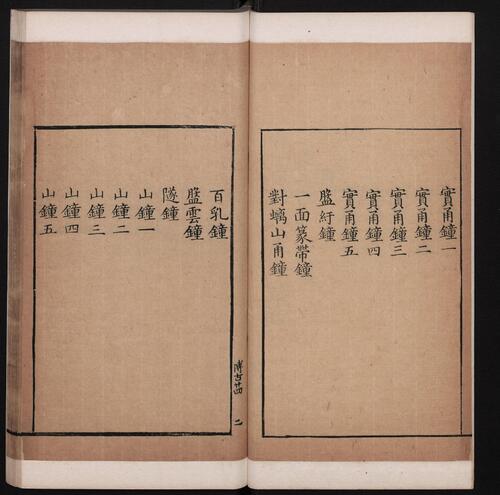 實甬鐘一
實甬鐘二
實甬鐘三
實甬鐘四
實甬鐘五
盤紆鐘
一面篆帶鐘
對螭山甬鐘
百乳鐘
盤雲鐘
隧鐘
山鐘一
山鐘二
山鐘三
山鐘四
山鐘五
博古廿四
二